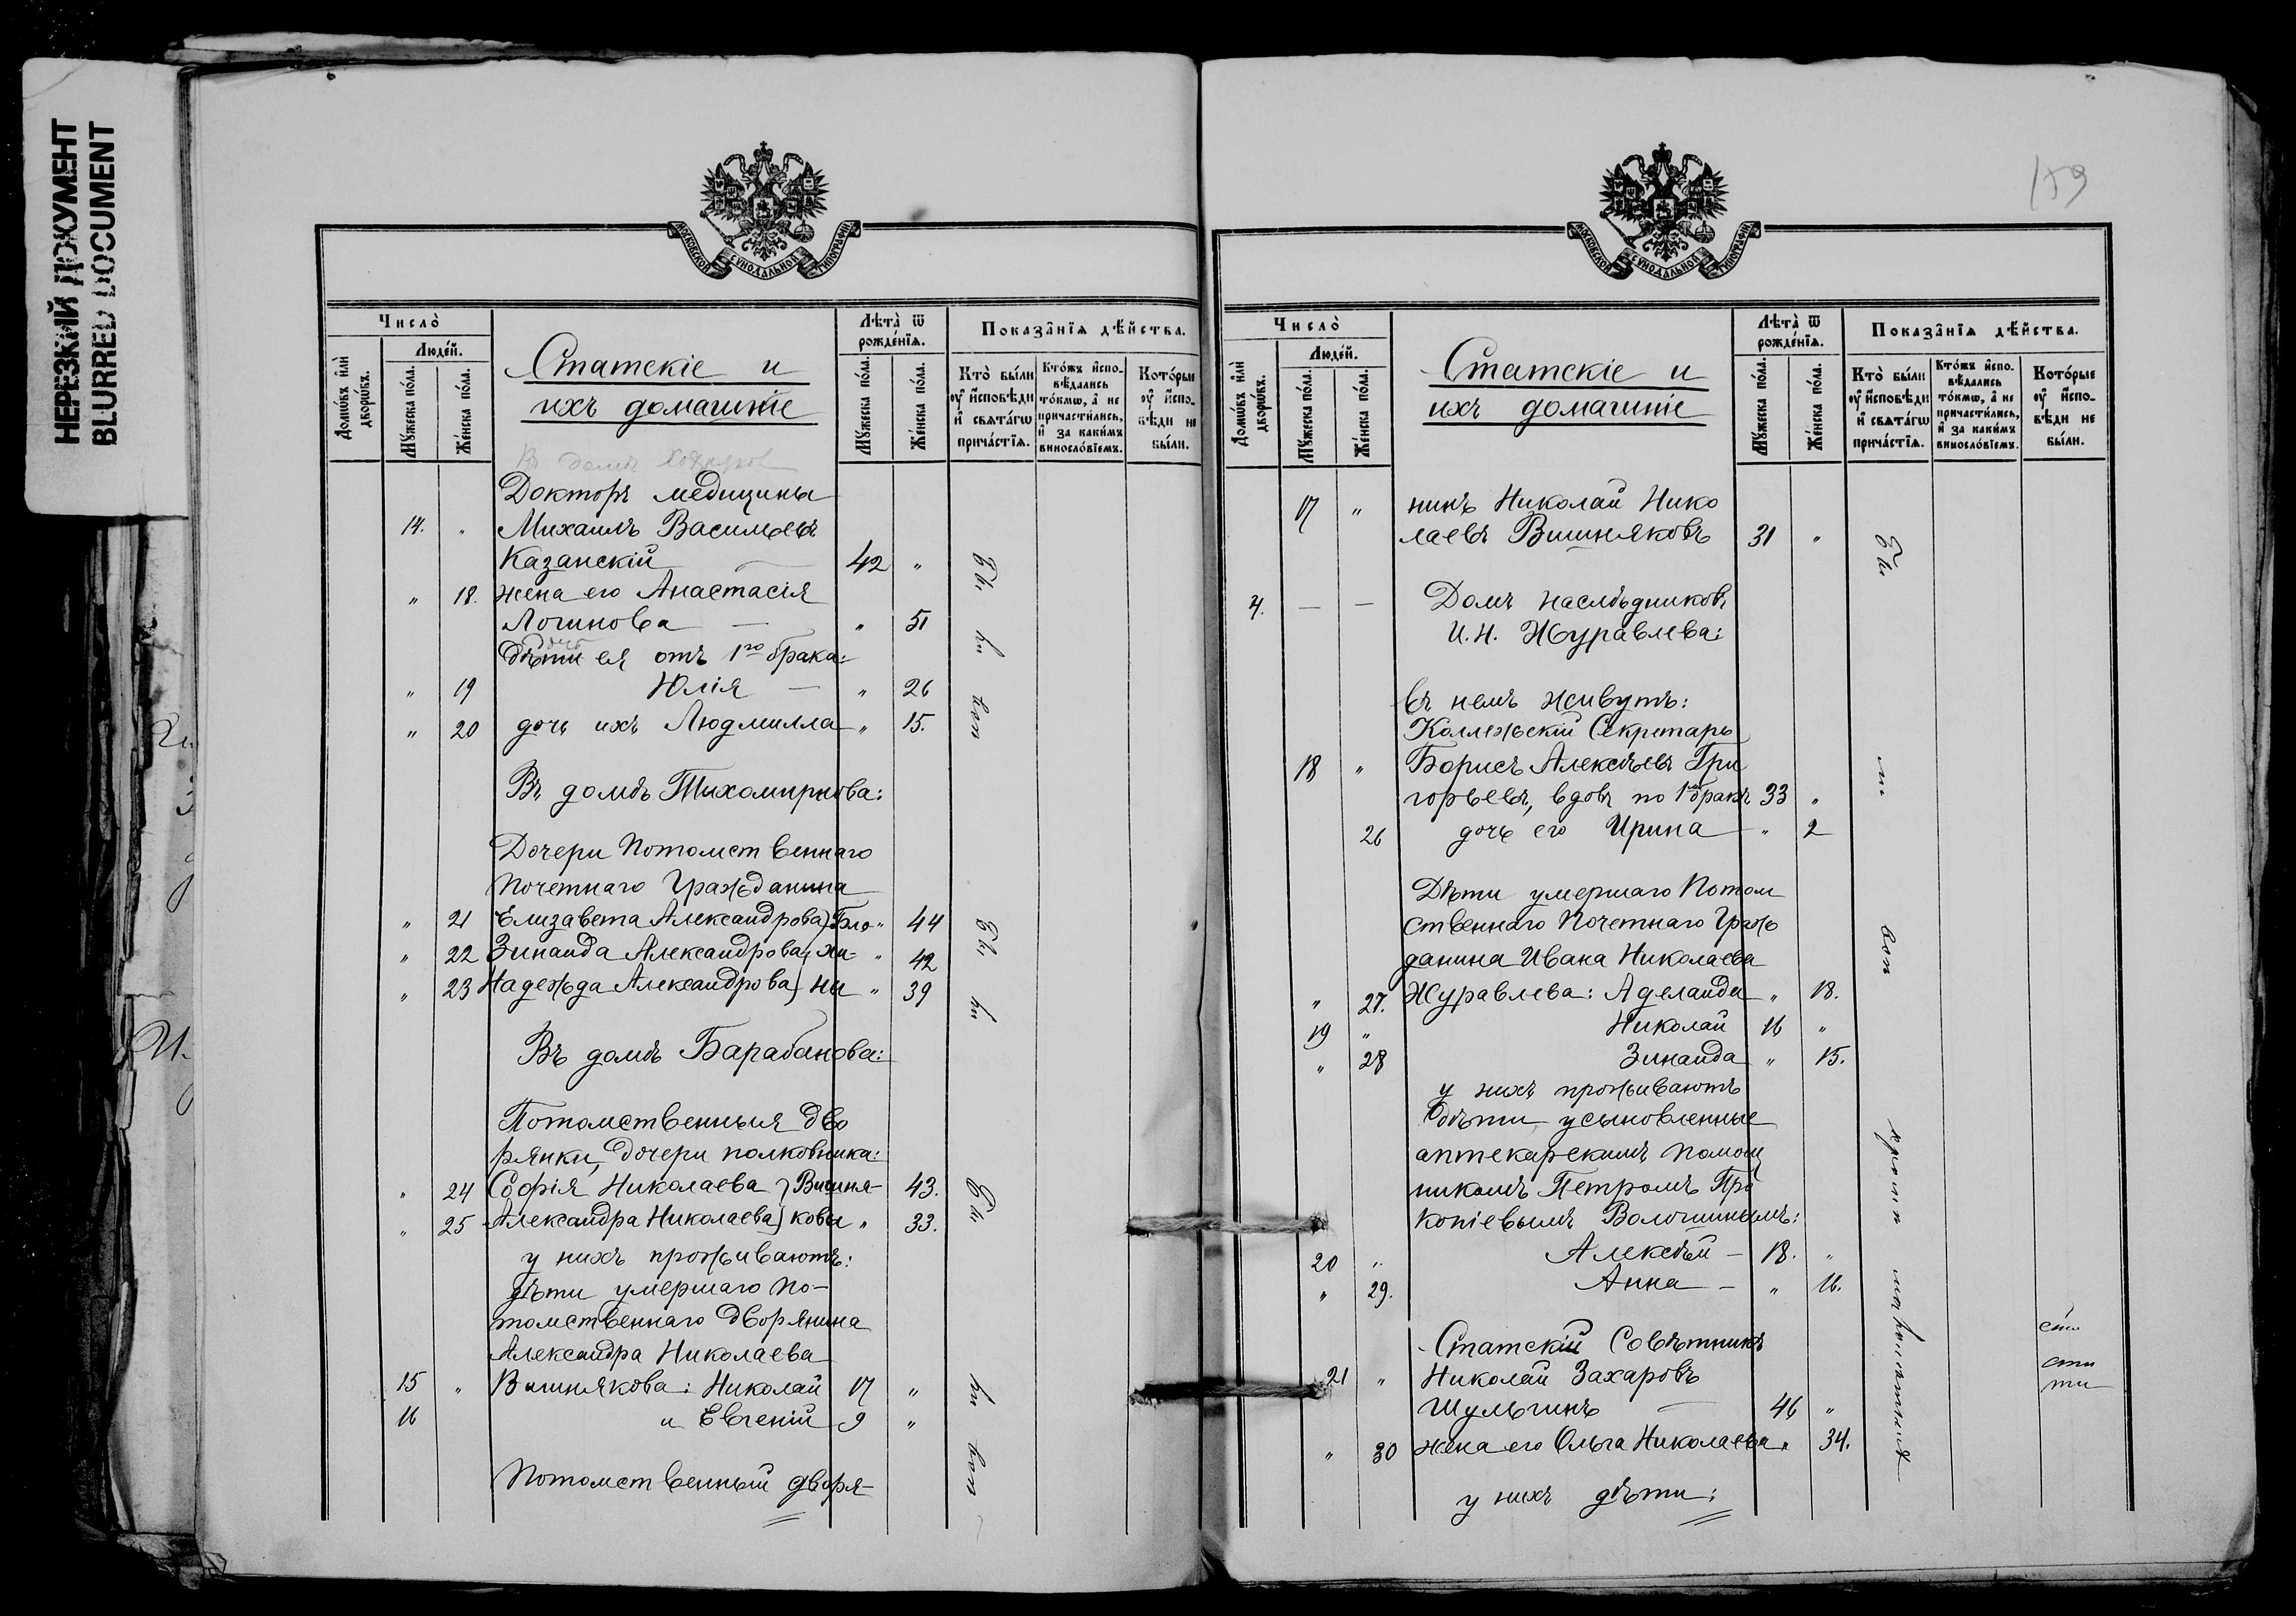 НЕРЕЗКИЙ ДОКУМЕНТ
BLURRED DOCUMENT
МОСКОВСКОЙ СѴНОДАЛЬНОЙ ТИПОГРАФІИ
Число̀
Людей.
Домѡвъ и҆лѝ дворѡвъ.
Мꙋжеска по́ла.
Же́нска по́ла.
Статскіе и
ихъ домашніе
Лѣта̀ ѿ рожде́нїѧ.
Мꙋжеска по́ла.
Же́нска по́ла.
Показа̑нїѧ дѣ́йства.
Кто̀ бы́ли ᲂу҆ и҆сповѣди и҆ свѧта́гѡ прича́стїѧ.
Кто́жъ и҆спо-вѣдались то́кмѡ, а҆ не причасти́лись, и҆ за каки́мъ винословїемъ.
Кото́рые ᲂу҆ и҆спо-вѣди не бы́ли.
Въ домѣ
Докторъ медицины
14. " Михаилъ Васильевъ
Казанскій — 42 "
" 18. жена его Анастасія
Логинова — " 51
дѣти ея отъ 1го брака:
" 19 Юлія — " 26
" 20 дочь ихъ Людмилла " 15.
Въ домѣ Тихомирнова:
Дочери Потомственнаго
Почетнаго Гражданина
" 21 Елизавета Александрова } Бло- " 44
" 22 Зинаида Александрова } хи- " 42
" 23 Надежда Александрова } ны " 39
Въ домѣ Барабанова:
Потомственныя дво
рянки, дочери полковника:
" 24 Софія Николаева } Вишня- 43.
" 25 Александра Николаева } ковы " 33.
у нихъ проживаютъ:
дѣти умершаго По-
томственнаго дворянина
Александра Николаева
15 " Вишнякова: Николай 17 "
16 и Евгеній 9 "
Потомственный дворя-
Бы
ли
вон
Бы
ли
Бы
ли
вон
159
МОСКОВСКОЙ СѴНОДАЛЬНОЙ ТИПОГРАФІИ
Число̀
Людей.
Домѡвъ и҆лѝ дворѡвъ.
Мꙋжеска по́ла.
Же́нска по́ла.
Статскіе и
ихъ домашніе
Лѣта̀ ѿ рожде́нїѧ.
Мꙋжеска по́ла.
Же́нска по́ла.
Показа̑нїѧ дѣ́йства.
Кто̀ бы́ли ᲂу҆ и҆сповѣди и҆ свѧта́гѡ прича́стїѧ.
Кто́жъ и҆спо-вѣдались то́кмѡ, а҆ не причасти́лись, и҆ за каки́мъ винословїемъ.
Кото́рые ᲂу҆ и҆спо-вѣди не бы́ли.
17 " нинъ Николай Нико
лаевъ Вишняковъ 31 "
4. — — Домъ наслѣдниковъ
И. Н. Журавлева:
въ немъ живутъ:
Коллежскій Секретарь
18 " Борисъ Алексѣевъ Гри
горьевъ, вдовъ по 1мъ бракѣ 33 "
26 дочь его Ирина — " 2
Дѣти умершаго Потом
ственнаго Почетнаго Граж
данина Ивана Николаева
" 27. Журавлева: Аделаида " 18.
19 " Николай 16 "
" 28 Зинаида " 15.
у нихъ проживаютъ
дѣти усыновленные
аптекарскимъ помощ
никомъ Петромъ Про
копіевымъ Волошинымъ:
20 " Алексѣй — 18. "
" 29. Анна — " 16.
Статскій Совѣтникъ
21 " Николай Захаровъ
Шульгинъ — 46 "
" 30 жена его Ольга Николаева " 34.
у нихъ дѣти: